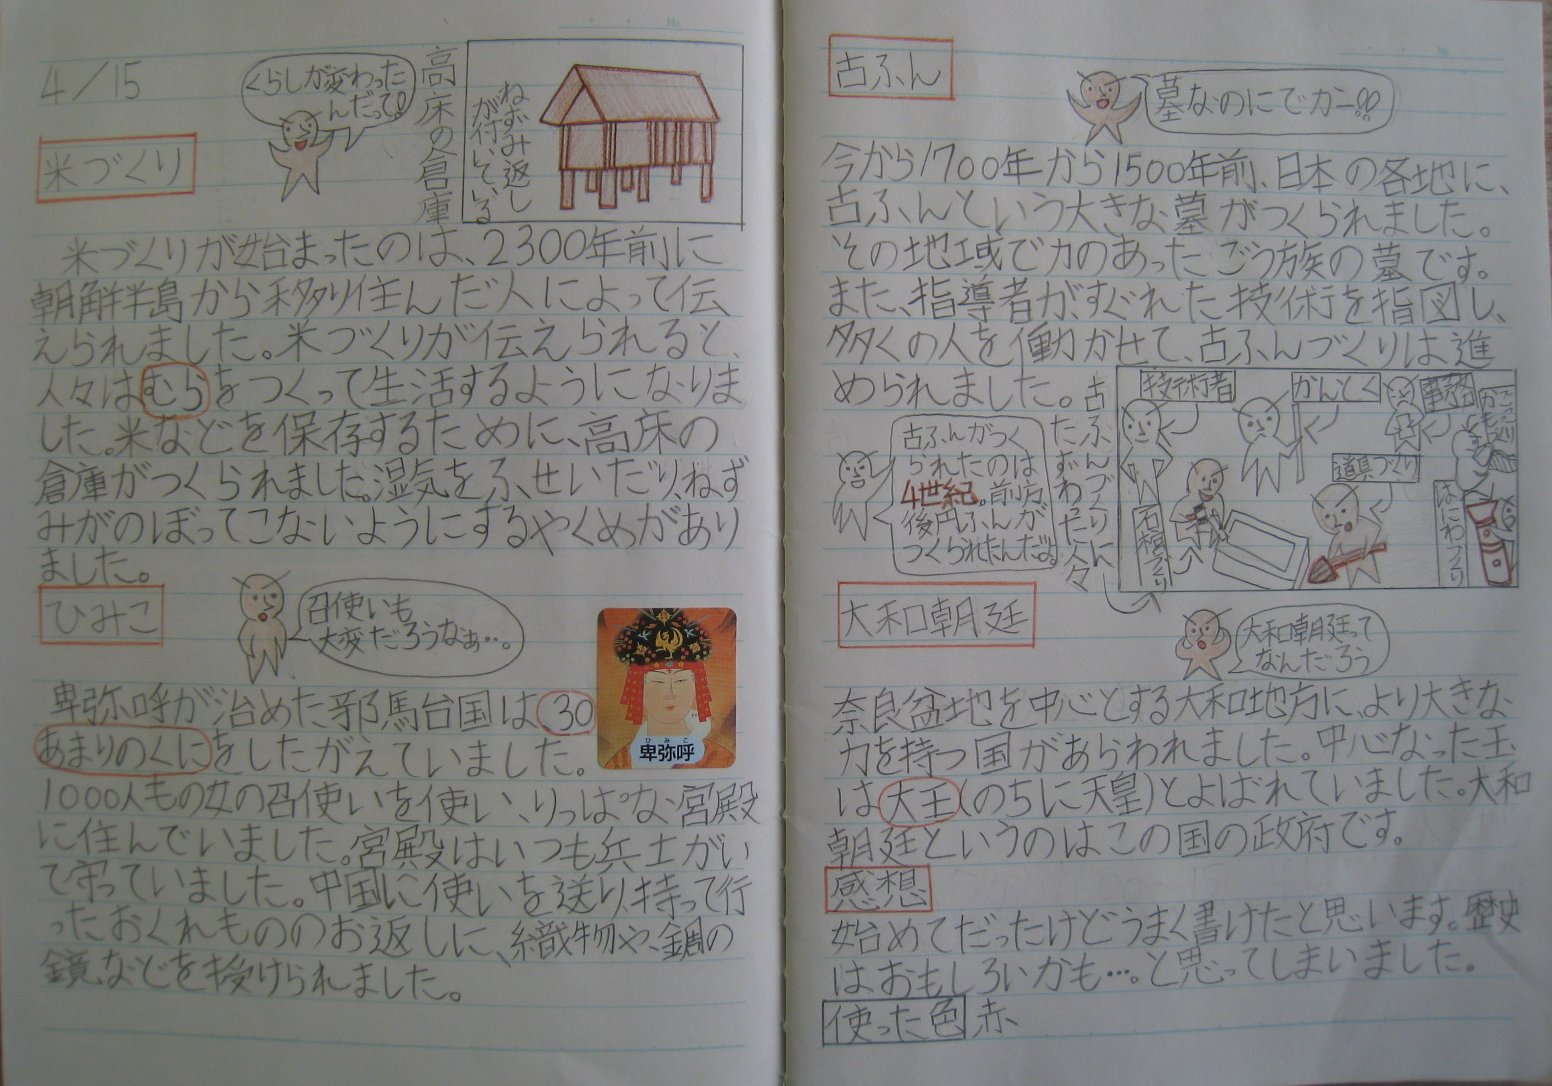 4/15
くらしが変わった
んだって!!
高床の倉庫
ねずみ返し
が付いている
米づくり
米づくりが始まったのは、2300年前に
朝鮮半島から移り住んだ人によって伝
えられました。米づくりが伝えられると、
人々はむらをつくって生活するようになりま
した。米などを保存するために、高床の
倉庫がつくられました。湿気をふせいだり、ねず
みがのぼってこないようにするやくめがあり
ました。
ひみこ
召使いも
大変だろうなぁ…。
卑弥呼が治めた邪馬台国は30
あまりのくにをしたがえていました。
ひみこ
卑弥呼
1000人もの女の召使いを使い、りっぱな宮殿
に住んでいました。宮殿はいつも兵士がい
て守っていました。中国に使いを送り、持って行
ったおくれもののお返しに、織物や、銅の
鏡などを授けられました。
古ふん
墓なのにでカー!!
今から1700年から1500年前、日本の各地に、
古ふんという大きな墓がつくられました。
その地域で力のあったごう族の墓です。
また、指導者が、すぐれた技術を指図し、
多くの人を働かせて、古ふんづくりは進
められました。
古ふんがつく
られたのは
4世紀。前方
後円ふんが
つくられたんだよ。
古ふんづくりに
たずわった人々
技術者
かんとく
道具づくり
石棺づくり
はにわづくり
大和朝廷
大和朝廷って
なんだろう
奈良盆地を中心とする大和地方に、より大きな
力を持つ国があらわれました。中心なった王
は大王(のちに天皇)とよばれていました。大和
朝廷というのはこの国の政府です。
感想
始めてだったけどうまく書けたと思います。歴史
はおもしろいかも…。と思ってしまいました。
使った色 赤